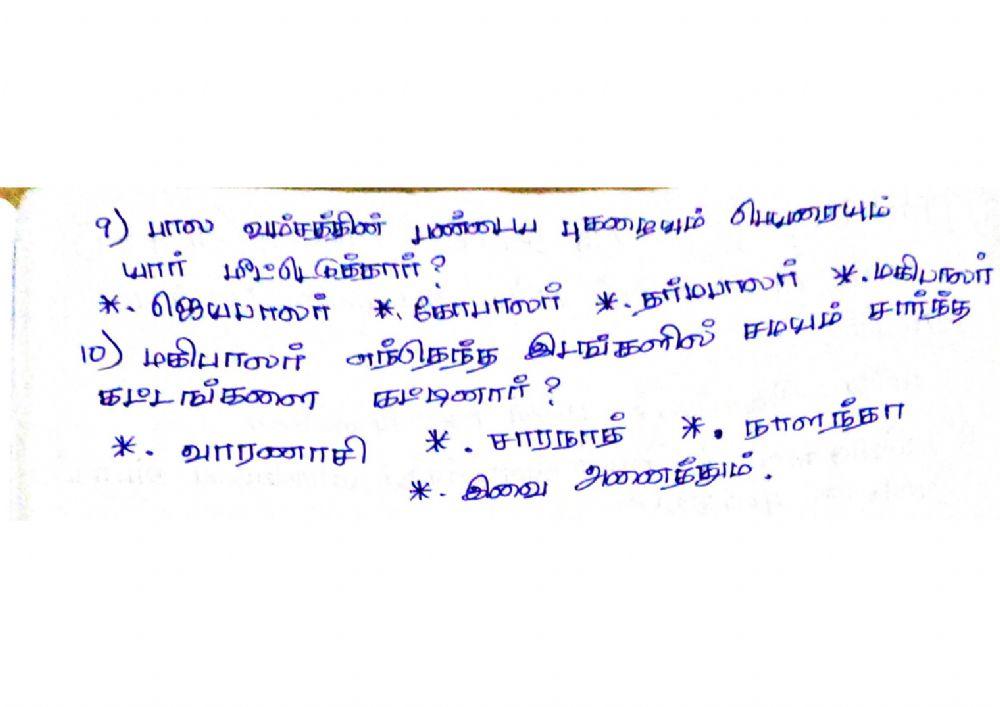 9) பால வம்சத்தின் பண்டைய புகழையும் பெயரையும்
யார் மீட்டெடுத்தார்?
*. ஜெயபாலர் *. கோபாலர் *. தர்மபாலர் *. மகிபாலர்
10) மகிபாலர் எந்தெந்த இடங்களில் சமயம் சார்ந்த
கட்டடங்களை கட்டினார்?
*. வாரணாசி *. சாரநாத் *. நாளந்தா
*. இவை அனைத்தும்.